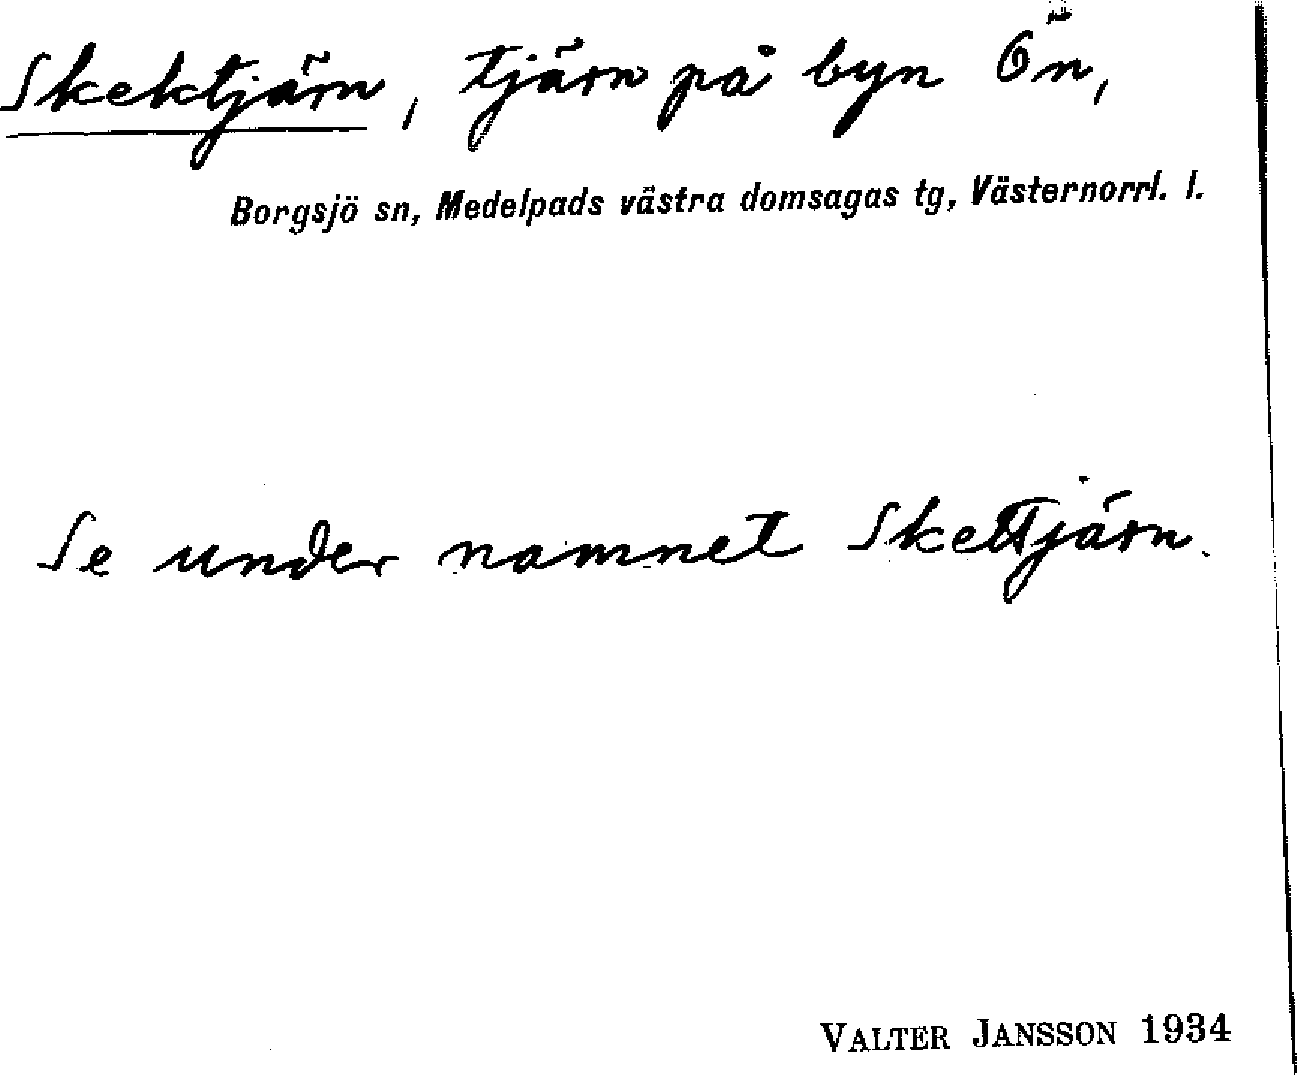 Skektjärn, tjärn på byn Ön,
Borgsjö sn, Medelpads västra domsagas tg, Västernorrl. l.
Se under namnet Skettjärn.
VALTER JANSSON 1934